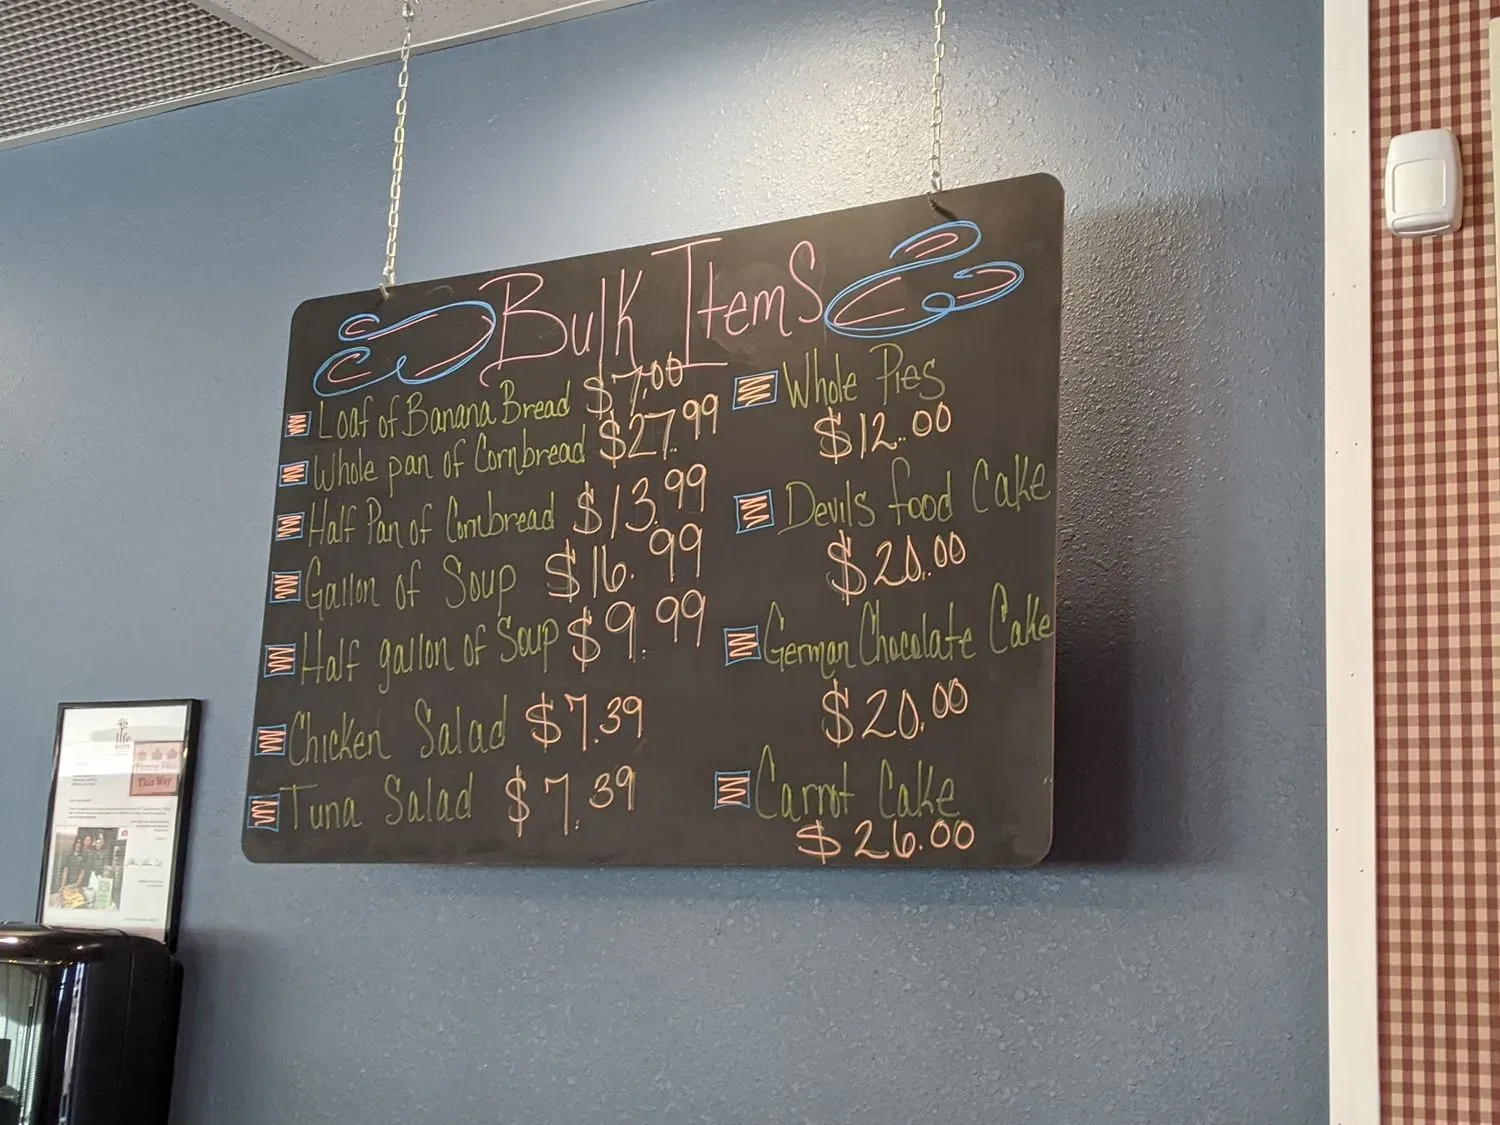 Bulk Items
Loaf of Banana Bread $7.00
Whole pan of Cornbread $27.99
Half Pan of Cornbread $13.99
Gallon of Soup $16.99
Half gallon of Soup $9.99
Chicken Salad $7.39
Tuna Salad $7.39
Whole Pies
$12.00
Devils food Cake
$20.00
German Chocolate Cake
$20.00
Carrot Cake
$26.00
life
This Way